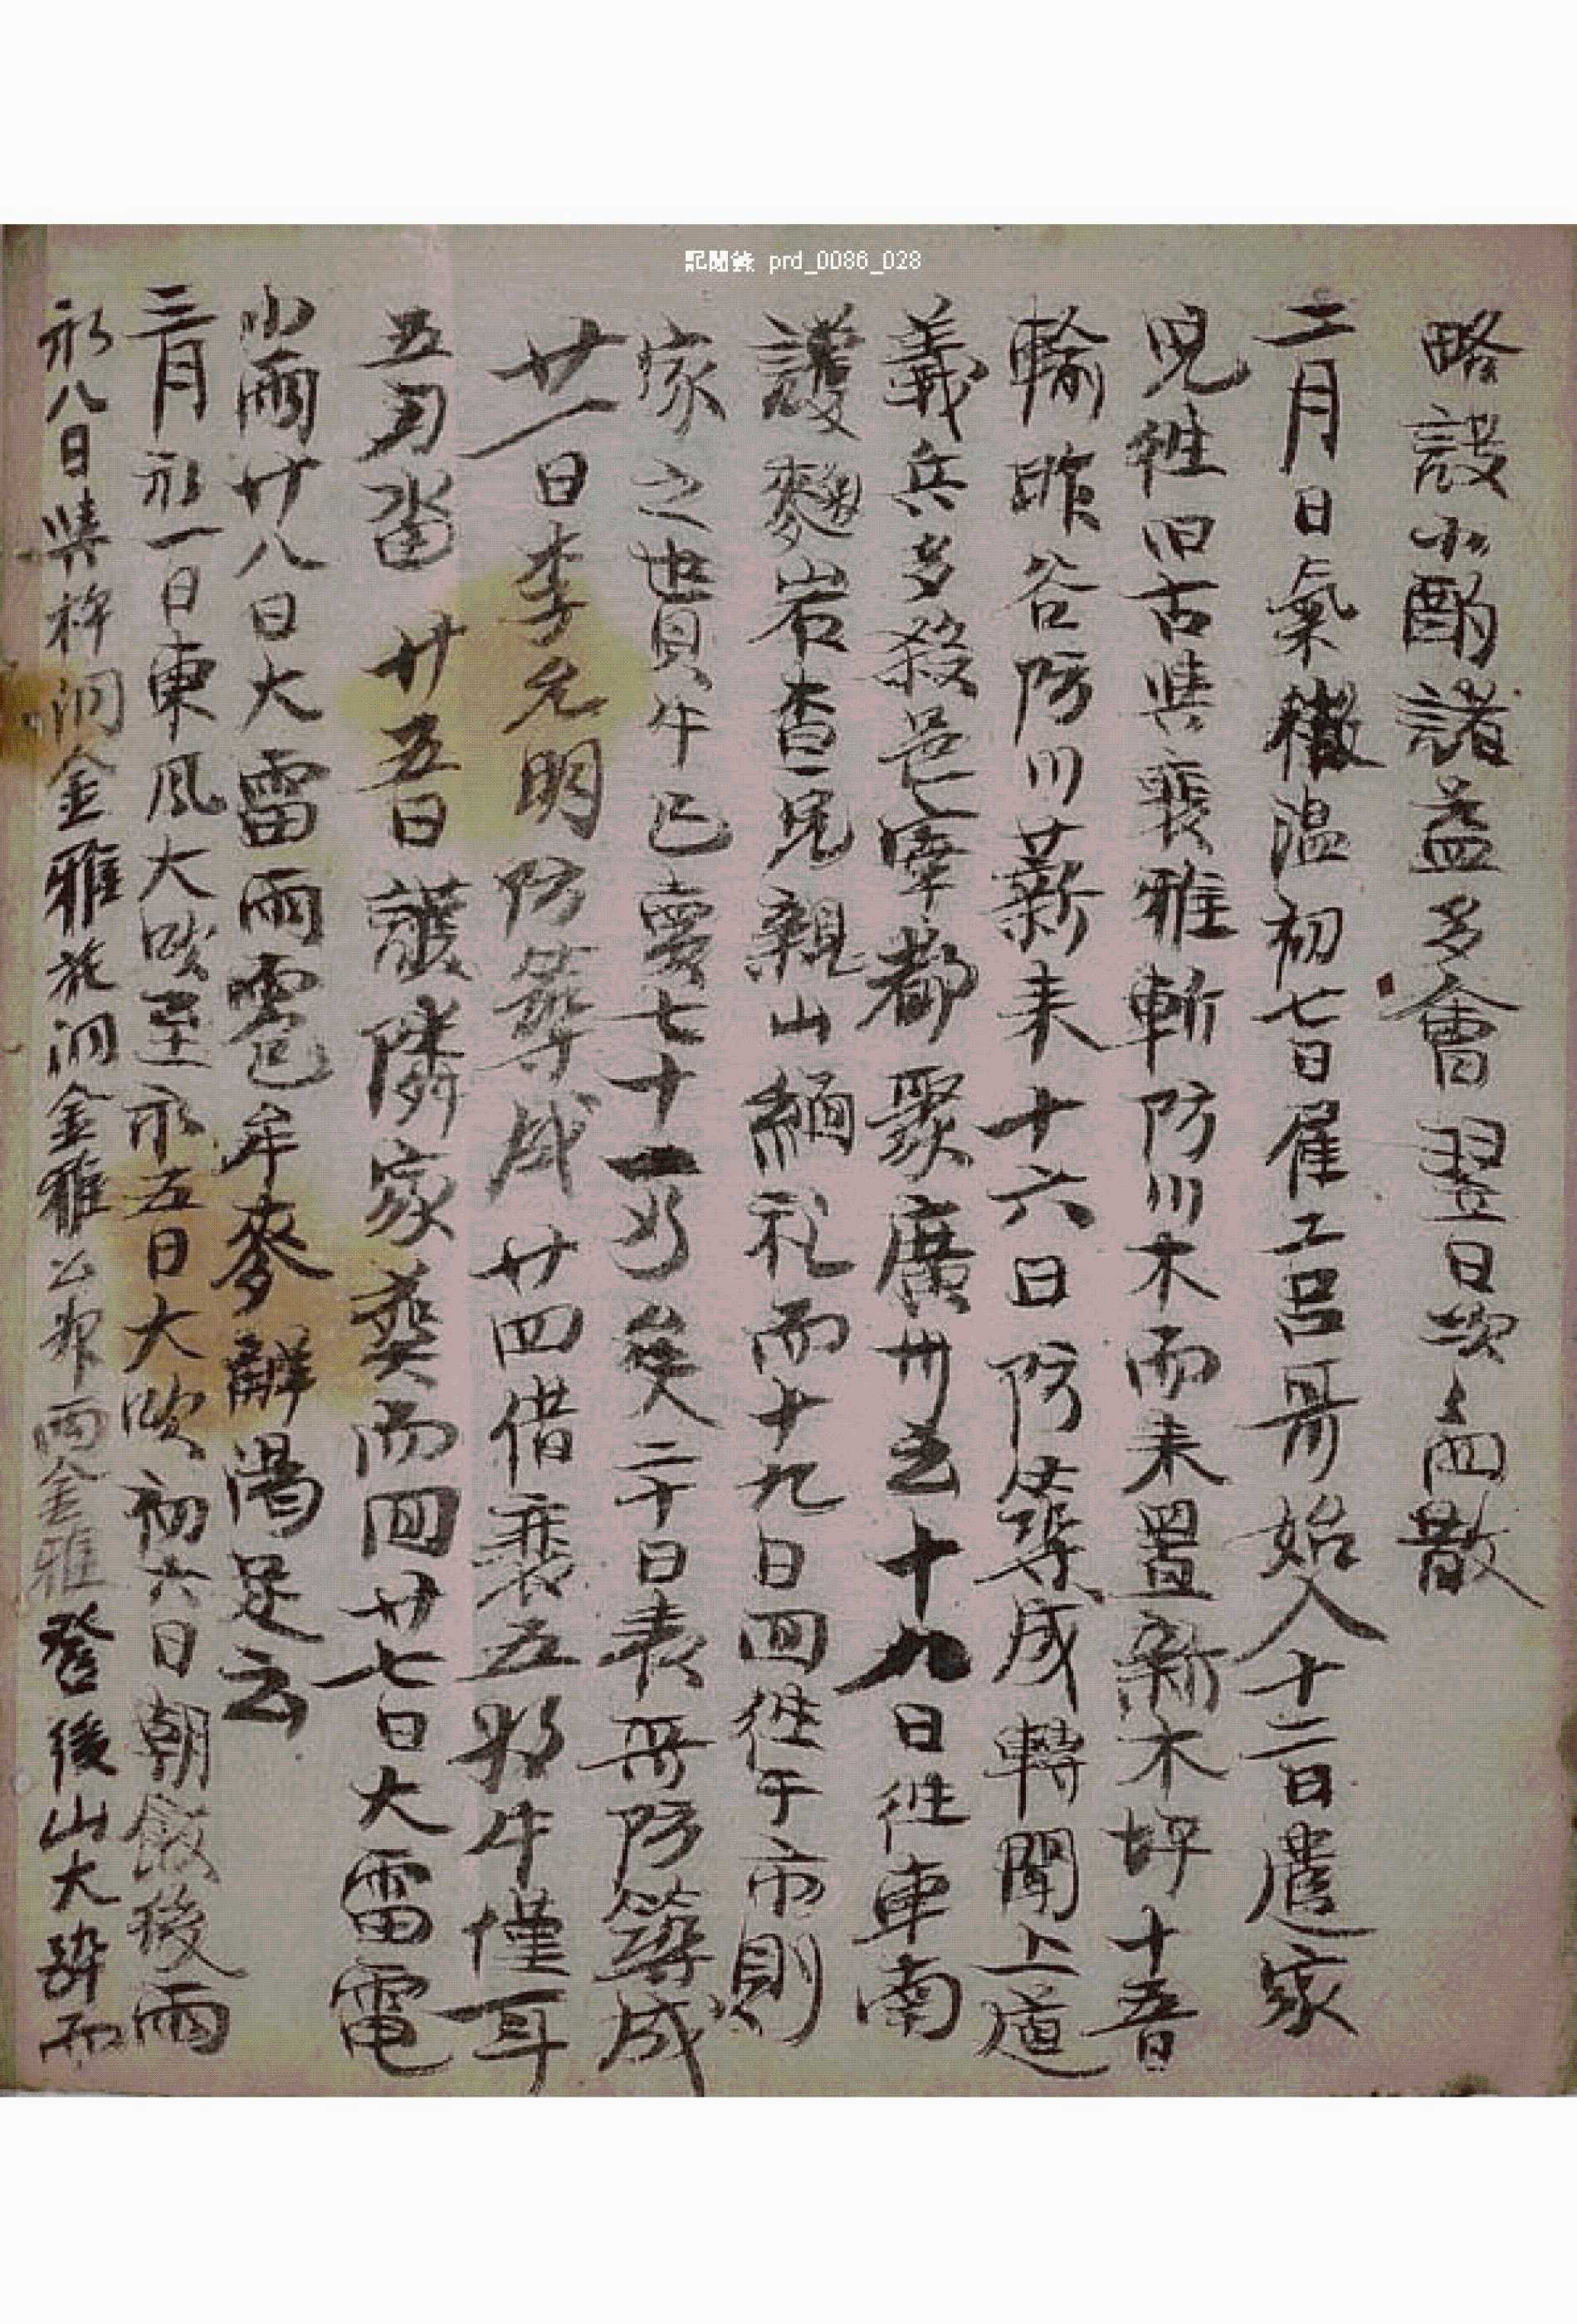 記聞錄 prd_0086_028
略設小酌諸益多會翌日次〻面散
二月日氣徵溫初七日雇工呂哥始入十二日遣家
兒徃旧古與裵雅斬防川木而来置新木坪十五日
輸昨谷防川薪来十六日防築成轉聞上道
義兵多殺邑宰都聚廣州云十八日徃車南
護麹岩査兄親山緬礼而十九日回徃于市則
家之貰牛已賣七十一兩矣二十日表哥防築成
廿一日李允明防築成廿四借裵五驾牛僅耳
五刃畓 廿五日護隣家葬而回廿七日大雷電
小雨廿八日大雷雨雹牟麥解渴足云
三月初一日東風大吹至初五日大吹初六日朝飯後雨
初八日與 洞金雅 洞金雅公 兩金雅登後山大醉而